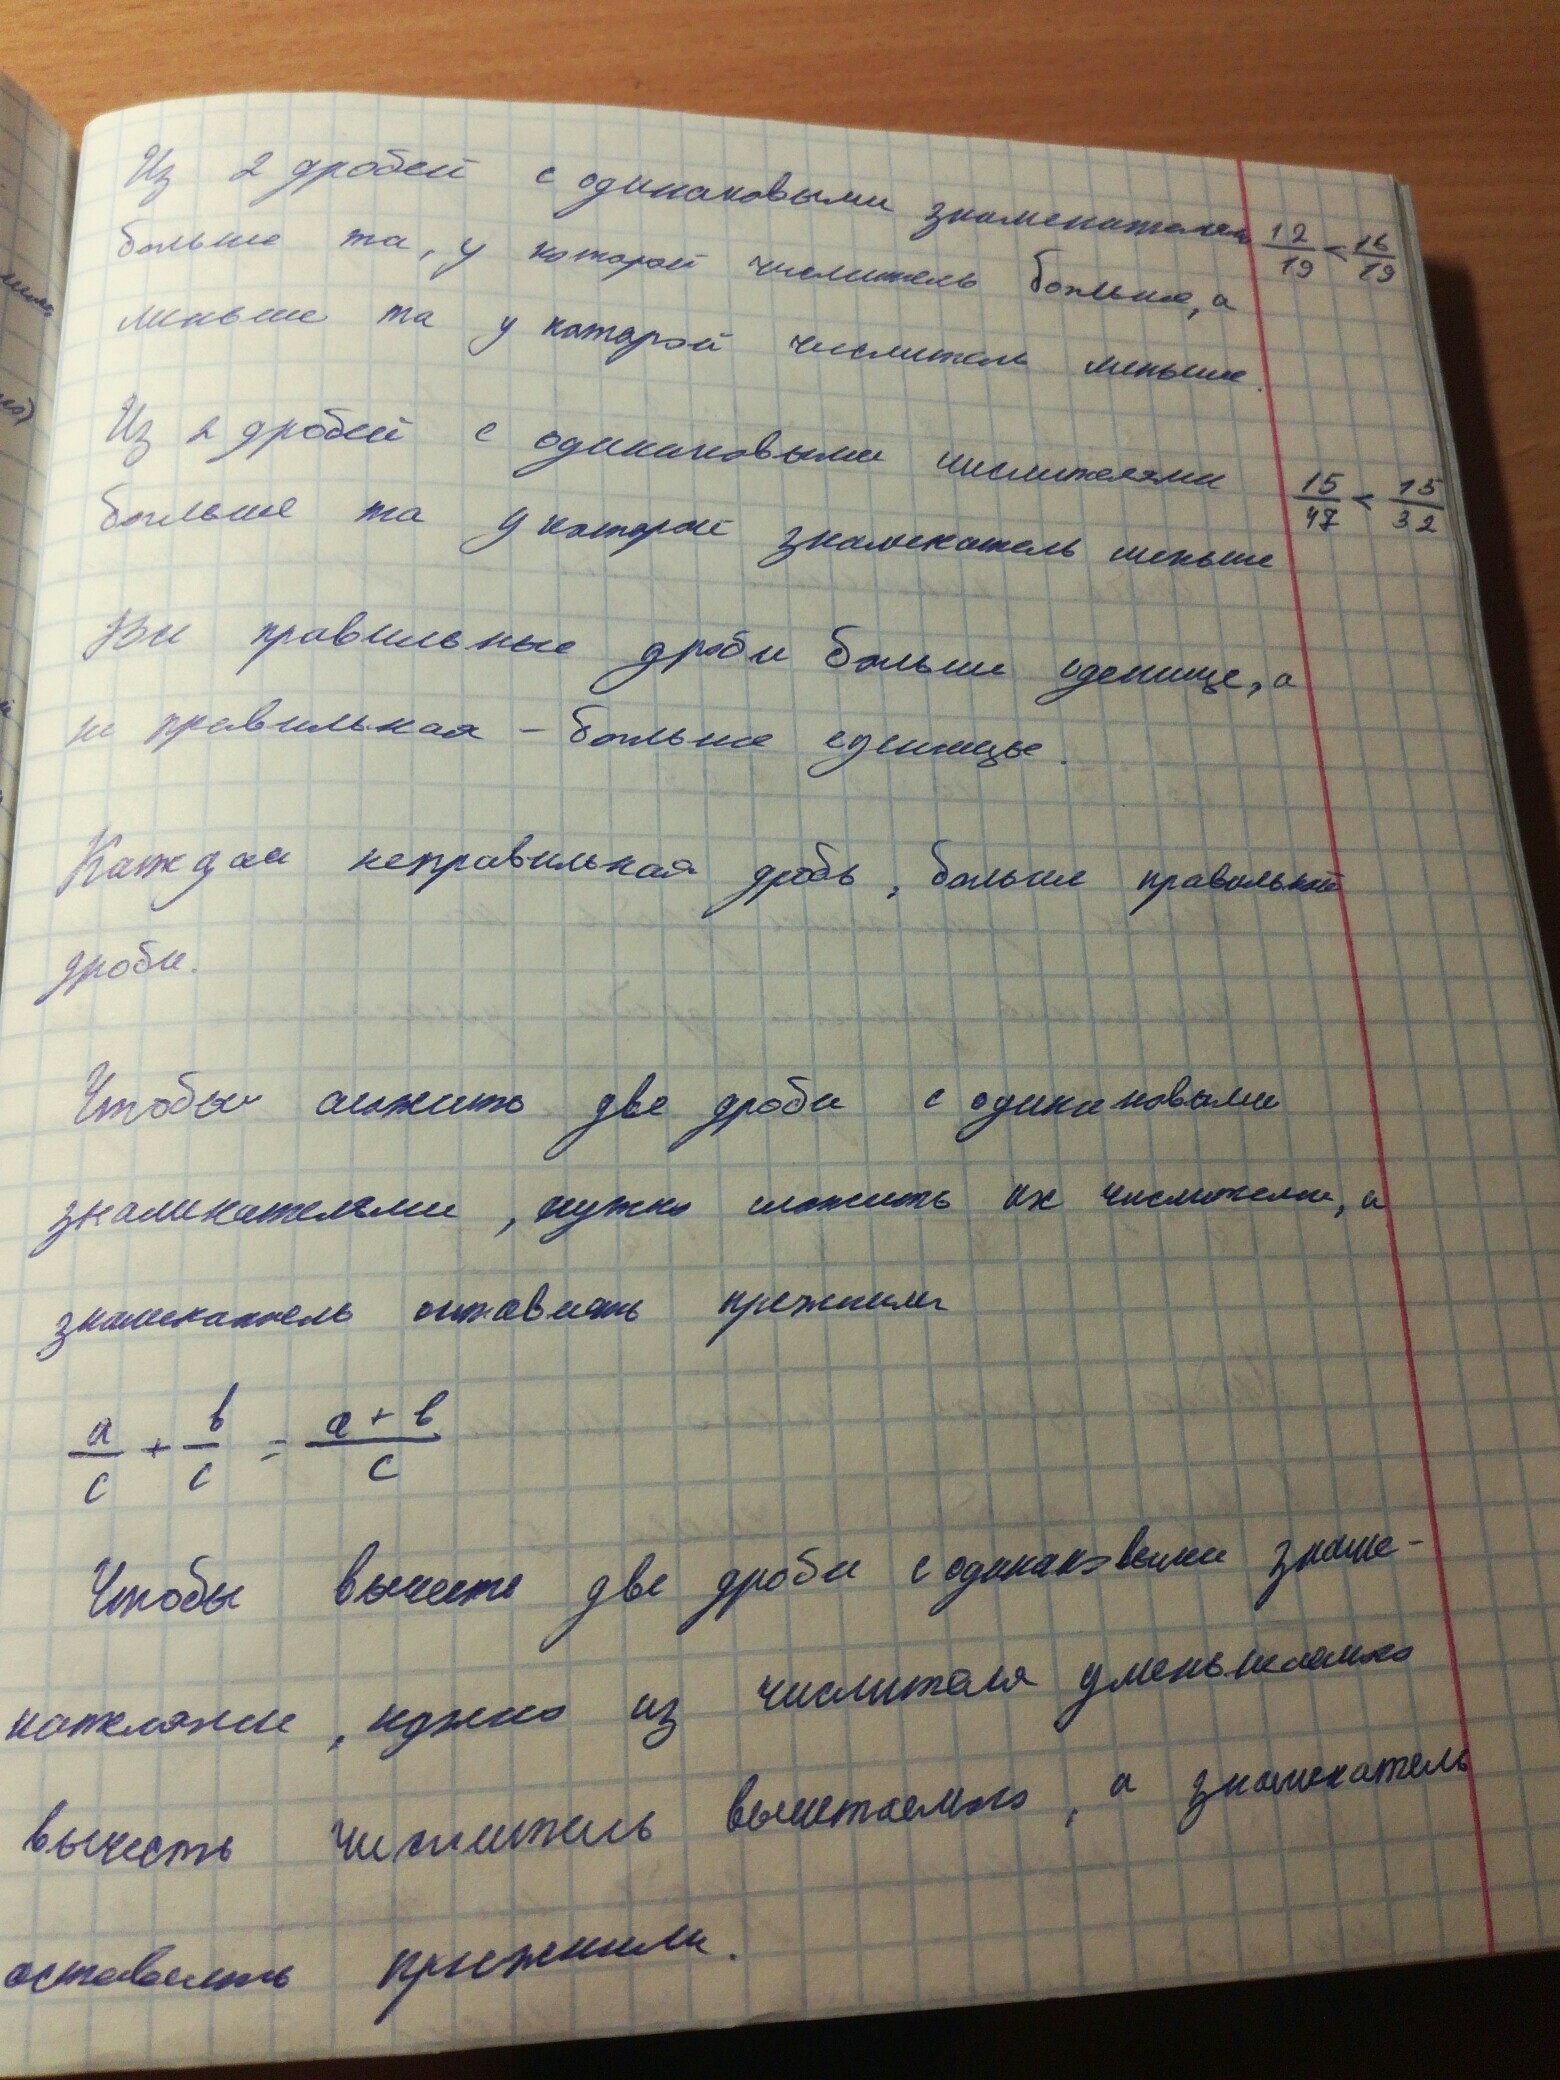 Из 2 дробей с одинаковыми знаменателям 12/19 < 16/19
больше та, у которой числитель больше, а
меньше та у которой числитель меньше.
Из 2 дробей с одинаковыми числителями 15/47 < 15/32
больше та у которой знаменатель меньше
Все правильные дроби больше еденице, а
не правильная - больше еденицы.
Каждая неправильная дробь, больше правильной
дроби.
Чтобы сложить две дроби с одинаковыми
знаменателями, нужно сложить их числители, а
знаменатель оставить прежним
a/c + b/c = a + b/c
Чтобы вычесть две дроби с одинаковыми знаме-
нателями, нужно из числителя уменьшаемого
вычесть числитель вычетаемого, а знаменатель
оставить прежним.